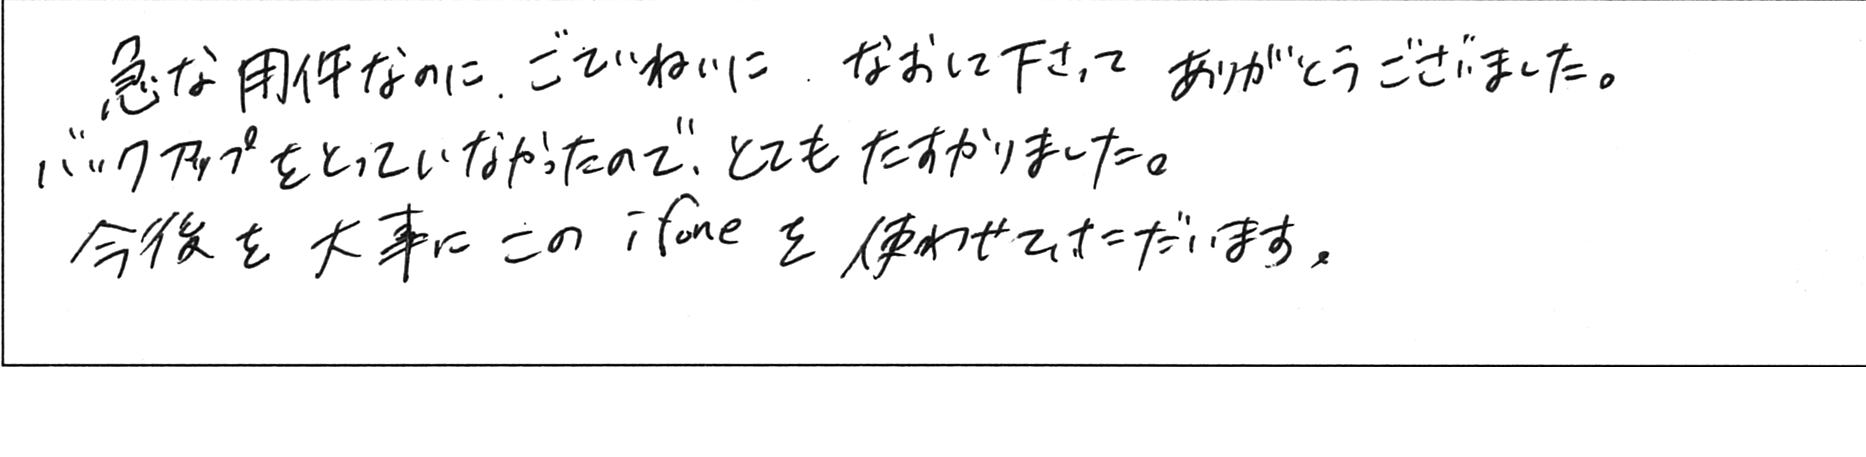 急な用件なのに、ごていねいに なおして下さって ありがとうございました。
バックアップをとっていなかったので、とても たすかりました。
今後を 大事に この ifone を 使わせていただいます。